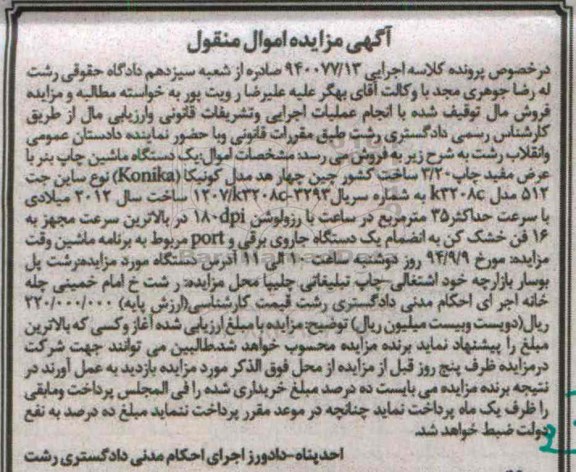 آگهی مزایده اموال منقول
درخصوص پرونده کلاسه اجرایی ۹۴۰۰۷۷/۱۳ صادره از شعبه سیزدهم دادگاه حقوقی رشت
له رضا جوهری مجد با وکالت آقای بهگر علیه علیرضا رویت پور به خواسته مطالبه و مزایده
فروش مال توقیف شده با انجام عملیات اجرایی وتشریفات قانونی وارزیابی مال از طریق
کارشناس رسمی دادگستری رشت طبق مقررات قانونی وبا حضور نماینده دادستان عمومی
وانقلاب رشت به شرح زیر به فروش می رسد: مشخصات اموال:یک دستگاه ماشین چاپ بنر با
عرض مفید چاپ ۳/۲۰ ساخت کشور چین چهار هد مدل کونیکا (Konika) نوع ساین جت
۵۱۲ مدل k۳۲۰۸c به شماره سریال ۱۲۰۷/k۳۲۰۸c-۳۲۹۳ ساخت سال ۲۰۱۲ میلادی
با سرعت حداکثر۳۵ مترمربع در ساعت با رزولوشن ۱۸۰dpi در بالاترین سرعت مجهز به
۱۶ فن خشک کن به انضمام یک دستگاه جاروی برقی و port مربوط به برنامه ماشین وقت
مزایده: مورخ ۹۴/۹/۹ روز دوشنبه ساعت ۱۰ الی ۱۱ آدرس دستگاه مورد مزایده:رشت پل
بوسار بازارچه خود اشتغالی-چاپ تبلیغاتی چلیپا محل مزایده: رشت خ امام خمینی چله
خانه اجرای احکام مدنی دادگستری رشت قیمت کارشناسی(ارزش پایه) ۲۲۰/۰۰۰/۰۰۰
ریال(دویست وبیست میلیون ریال) توضیح:مزایده با مبلغ ارزیابی شده آغاز وکسی که بالاترین
مبلغ را پیشنهاد نماید برنده مزایده محسوب خواهد شد.طالبین می توانند جهت شرکت
درمزایده ظرف پنج روز قبل از مزایده از محل فوق الذکر مورد مزایده بازدید به عمل آورند در
نتیجه برنده مزایده می بایست ده درصد مبلغ خریداری شده را فی المجلس پرداخت ومابقی
را ظرف یک ماه پرداخت نماید چنانچه در موعد مقرر پرداخت ننماید مبلغ ده درصد به نفع
دولت ضبط خواهد شد.
احدپناه-دادورز اجرای احکام مدنی دادگستری رشت